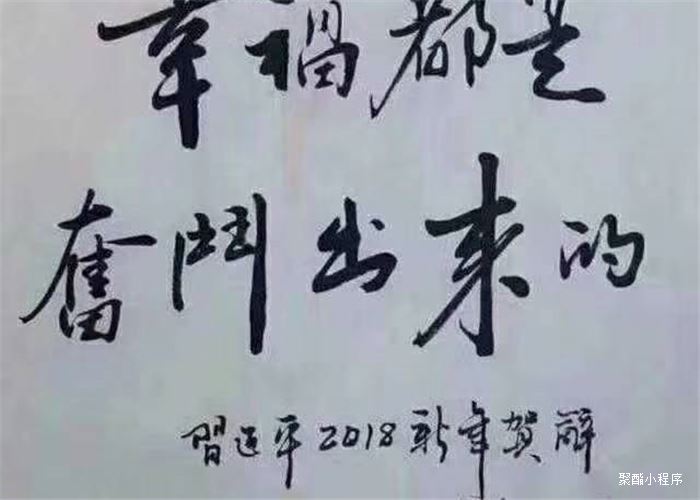 幸福都是
奮鬥出来的
習近平2018新年賀辭
聚酯小程序